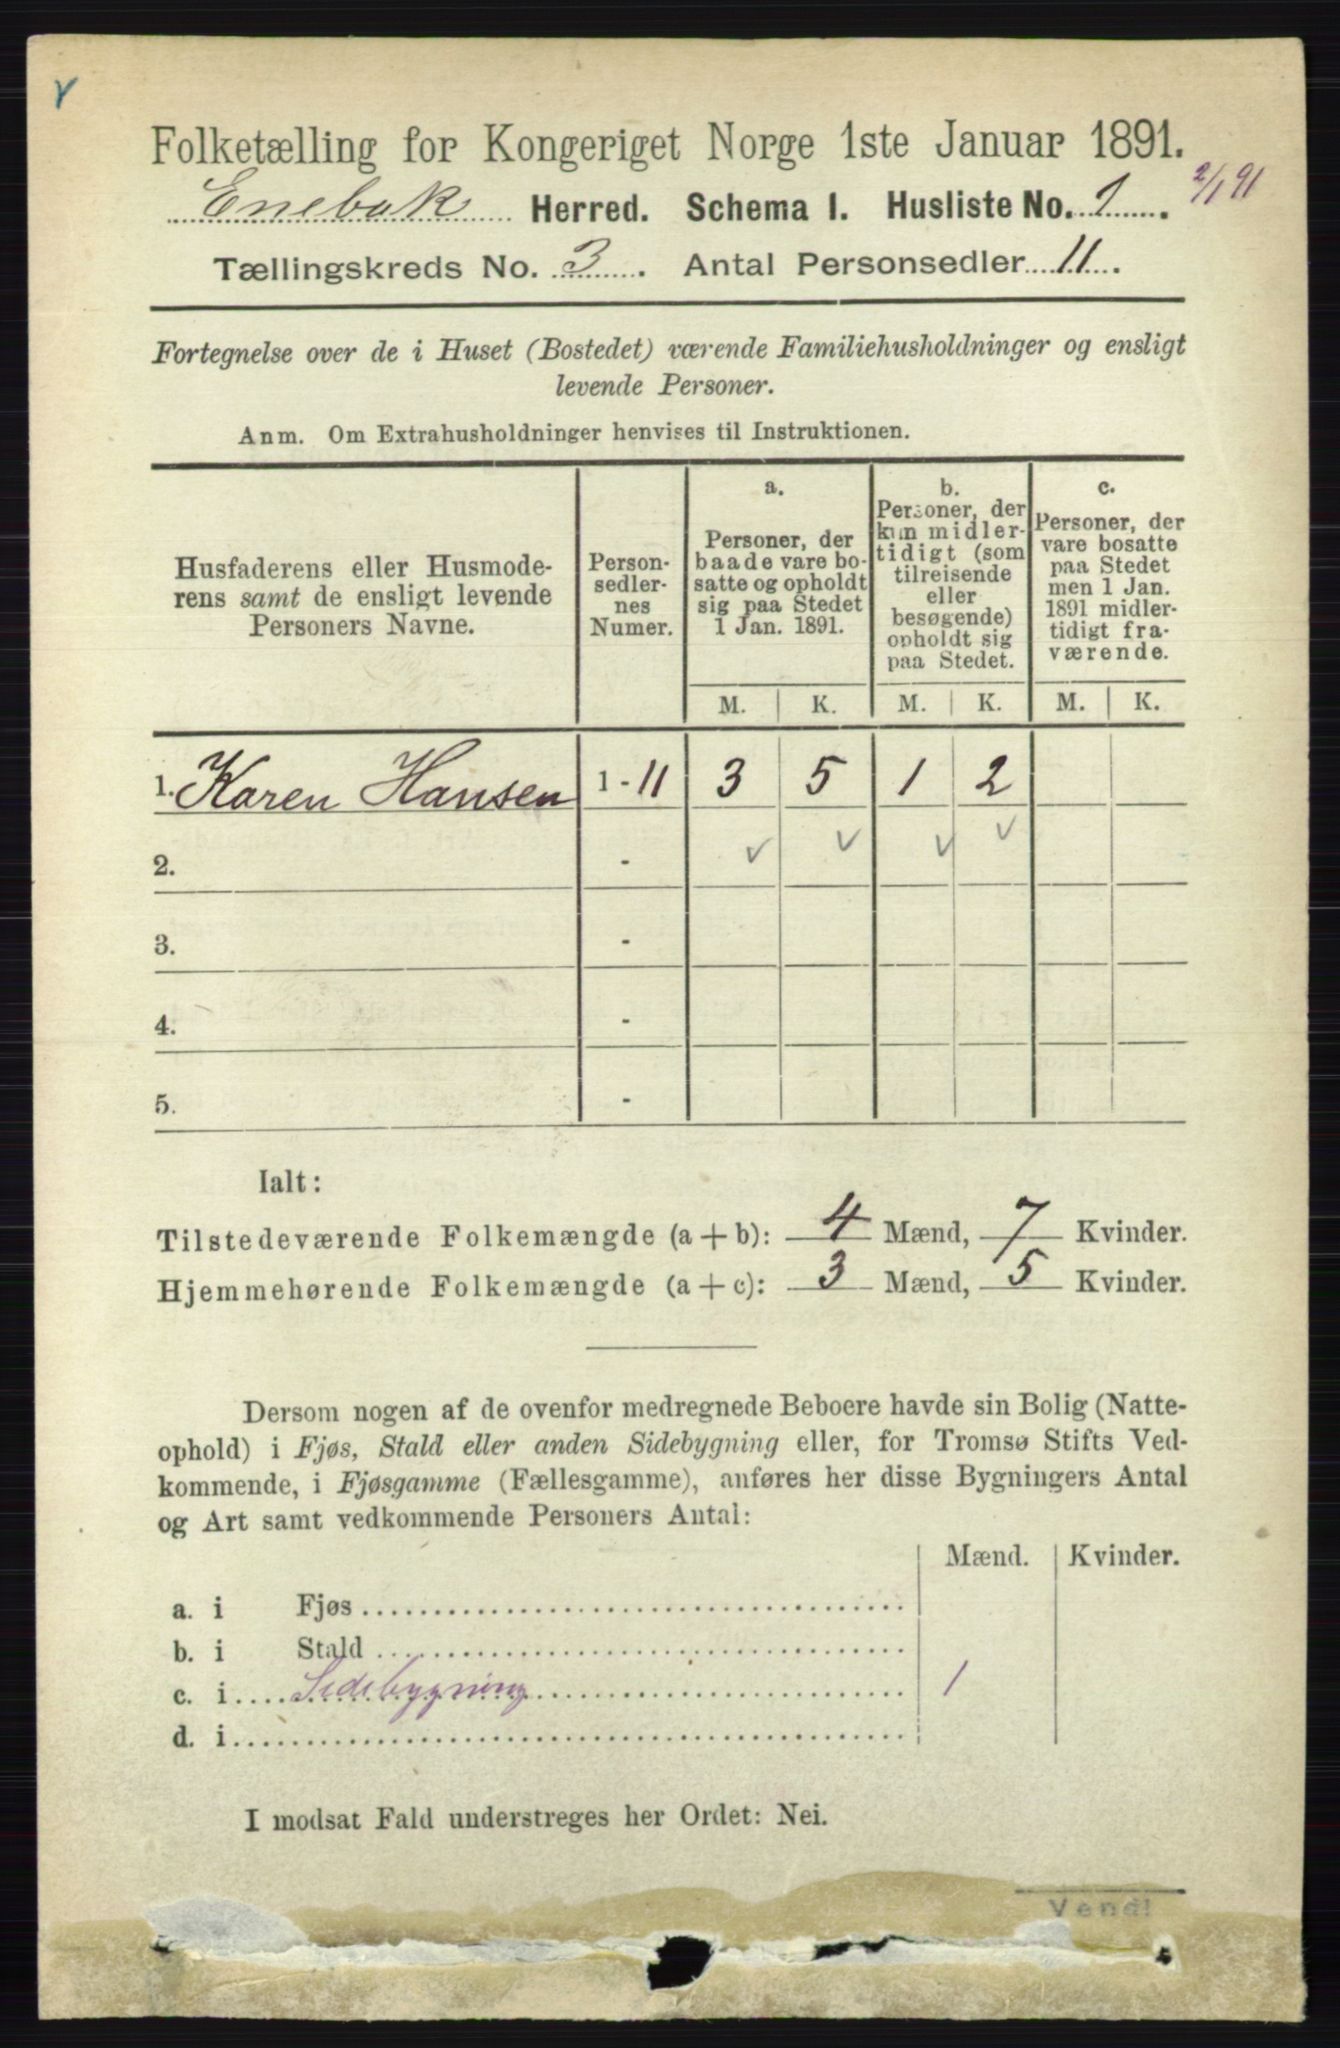 v
Folketælling for Kongeriget Norge 1ste Januar 1891.
Enebak Herred. Schema I. Husliste No. 1.
2/1 91
Tællingskreds No. 3. Antal Personsedler 11.
Fortegnelse over de i Huset (Bostedet) værende Familiehusholdninger og ensligt
levende Personer.
Anm. Om Extrahusholdninger henvises til Instruktionen.
Husfaderens eller Husmode-
rens samt de ensligt levende
Personers Navne.
Person-
sedler-
nes
Numer.
a.
Personer, der
baade vare bo-
satte og opholdt
sig paa Stedet
1 Jan. 1891.
b.
Personer, der
kun midler-
tidigt (som
tilreisende
eller
besøgende)
opholdt sig
paa Stedet.
c.
Personer, der
vare bosatte
paa Stedet
men 1 Jan.
1891 midler-
tidigt fra-
værende.
M. K. M. K. M. K.
1. Karen Hansen 1 - 11 3 5 1 2
2. - v v v v
3. -
4. -
5. -
Ialt:
Tilstedeværende Folkemængde (a + b): 4 Mænd, 7 Kvinder.
Hjemmehørende Folkemængde (a + c): 3 Mænd, 5 Kvinder.
Dersom nogen af de ovenfor medregnede Beboere havde sin Bolig (Natte-
ophold) i Fjøs, Stald eller anden Sidebygning eller, for Tromsø Stifts Ved-
kommende, i Fjøsgamme (Fællesgamme), anføres her disse Bygningers Antal
og Art samt vedkommende Personers Antal:
Mænd. Kvinder.
a. i Fjøs
b. i Stald
c. i Sidebygning 1
d. i
I modsat Fald understreges her Ordet: Nei.
Vend!